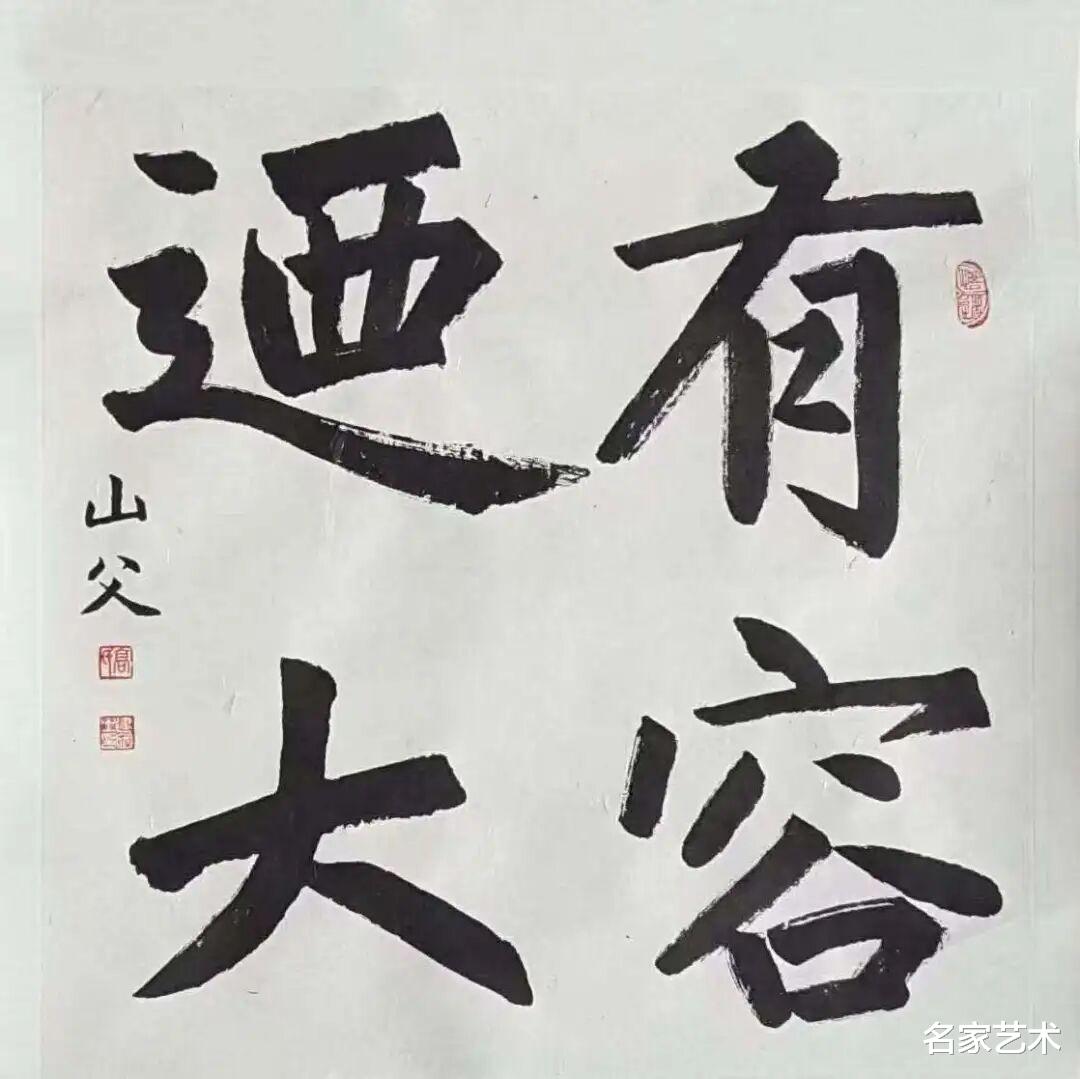 有容
迺大
山父
名家艺术